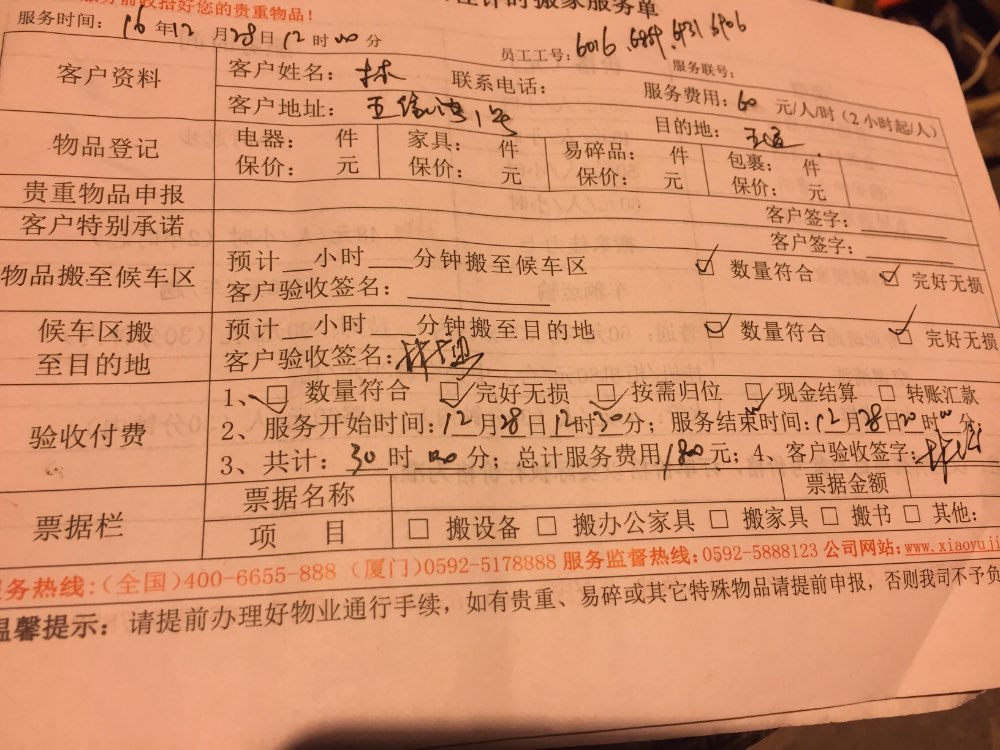 服务前收拾好您的贵重物品！
计时搬家服务单
服务时间：16年12月28日12时00分 员工工号：6016. 服务联号：
客户资料 客户姓名：林 联系电话： 服务费用：60 元/人/时（2小时起/人）
客户地址：五缘湾1号 目的地：
物品登记 电器： 件 家具： 件 易碎品： 件 包裹： 件
保价： 元 保价： 元 保价： 元 保价： 元
贵重物品申报 客户签字：
客户特别承诺 客户签字：
物品搬至候车区 预计__小时___分钟搬至候车区 ☑ 数量符合 ☑ 完好无损
客户验收签名：
候车区搬至目的地 预计__小时___分钟搬至目的地 ☑ 数量符合 ☑ 完好无损
客户验收签名：
验收付费 1、☑ 数量符合 ☑ 完好无损 ☑ 按需归位 ☑ 现金结算 □ 转账汇款
2、服务开始时间：12月28日12时30分；服务结束时间：12月28日20时00分
3、共计：30时00分；总计服务费用1800元；4、客户验收签字：
票据栏 票据名称 票据金额
项 目 □ 搬设备 □ 搬办公家具 □ 搬家具 □ 搬书 □ 其他：
服务热线：(全国)400-6655-888 (厦门)0592-5178888 服务监督热线：0592-5888123 公司网站：www.xiaoyuji
温馨提示：请提前办理好物业通行手续，如有贵重、易碎或其它特殊物品请提前申报，否则我司不予负